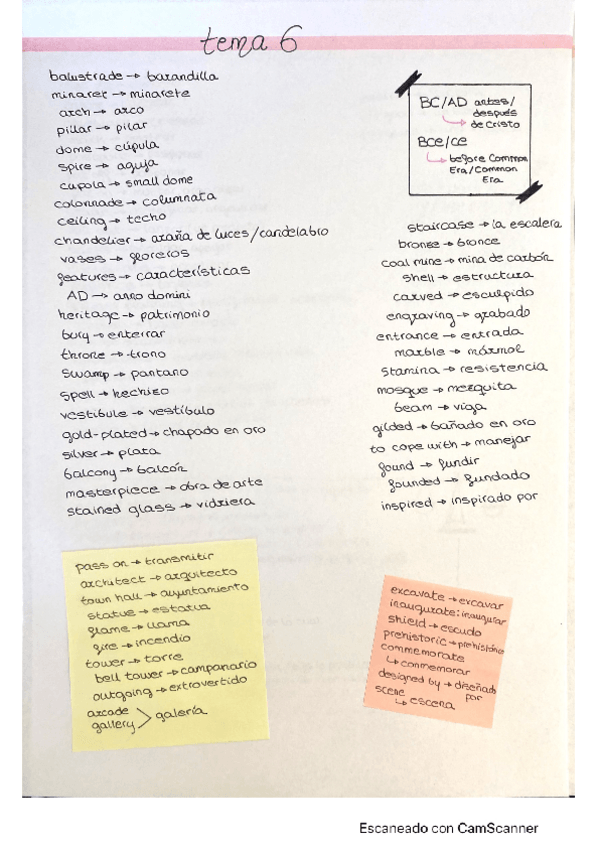 tema 6
balustrade → barandilla
minaret → minarete
arch → arco
pillar → pilar
dome → cúpula
spire → aguja
cupola → small dome
colonnade → columnata
ceiling → techo
chandelier → araña de luces/candelabro
vases → floreros
features → características
AD → anno domini
heritage → patrimonio
bury → enterrar
throne → trono
swamp → pantano
spell → hechizo
vestibule → vestíbulo
gold-plated → chapado en oro
silver → plata
balcony → balcón
masterpiece → obra de arte
stained glass → vidriera
BC/AD antes/
después
de Cristo
BCE/CE
before Common
Era/Common
Era.
staircase → la escalera
bronse → bronce
coal mine → mina de carbón
shell → estructura
carved → esculpido
engraving → grabado
entrance → entrada
marble → mármol
stamina → resistencia
mosque → mezquita
beam → viga
gilded → bañado en oro
to cope with → manejar
found → fundir
founded → fundado
inspired → inspirado por
pass on → transmitir
architect → arquitecto
town hall → ayuntamiento
statue → estatua
flame → llama
fire → incendio
tower → torre
bell tower → campanario
outgoing → extrovertido
arcade
gallery > galería
excavate → excavar
inaugurate: inaugurar
shield → escudo
prehistoric → prehistórico
commemorate
↳ conmemorar
designed by → diseñado
por
scene
↳ escena
Escaneado con CamScanner